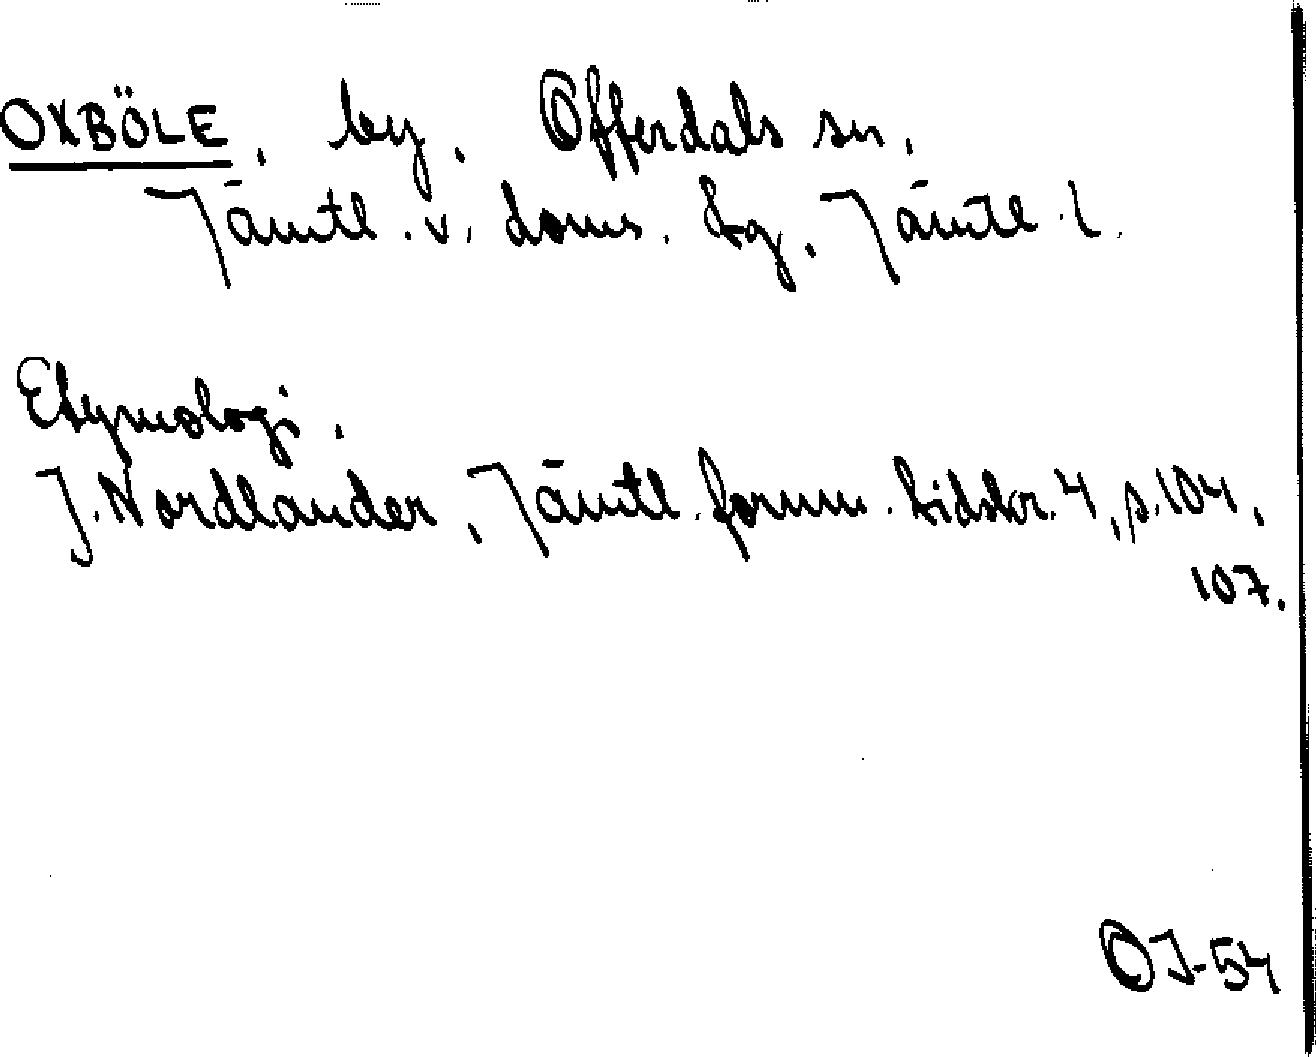 OXBÖLE. by. Offerdals sn.
Jämtl. v. doms. tg. Jämtl. l.
Etymologi.
J. Nordlander, Jämtl. fornm. tidskr. 4, s. 104,
107.
OJ-54